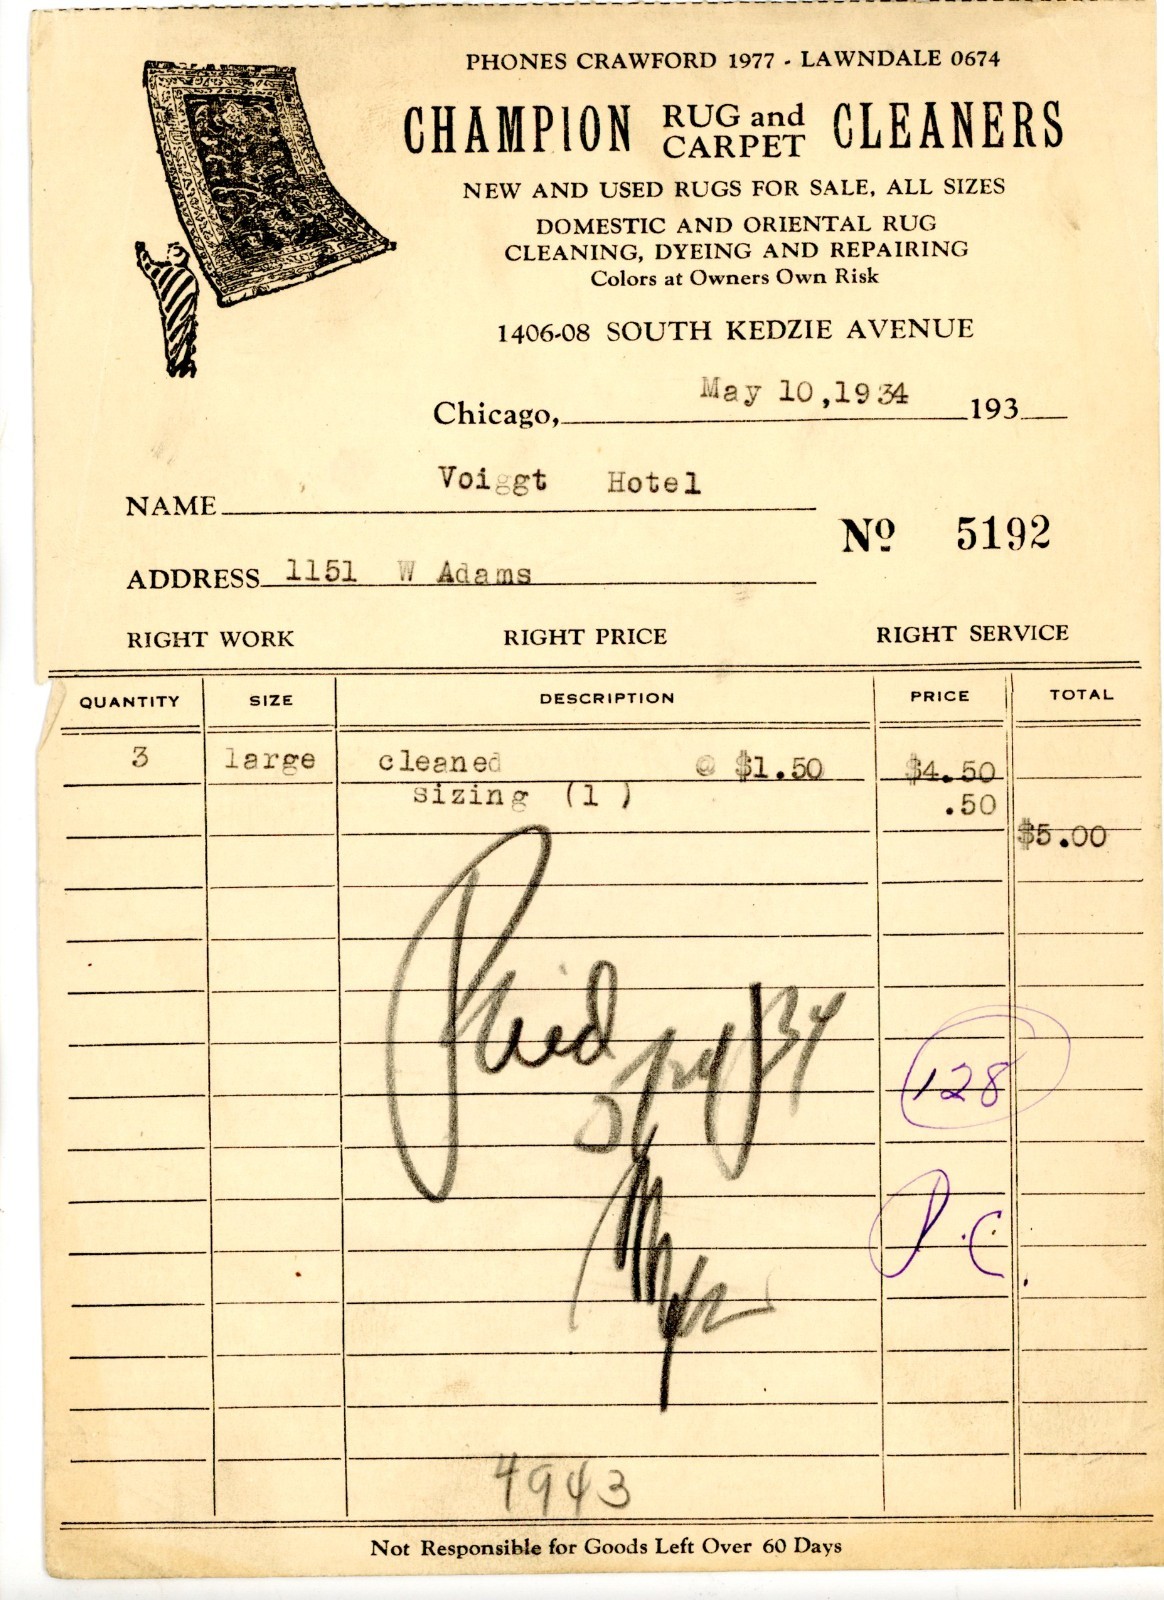 PHONES CRAWFORD 1977 - LAWNDALE 0674
CHAMPION RUG and CARPET CLEANERS
NEW AND USED RUGS FOR SALE, ALL SIZES
DOMESTIC AND ORIENTAL RUG
CLEANING, DYEING AND REPAIRING
Colors at Owners Own Risk
1406-08 SOUTH KEDZIE AVENUE
Chicago, May 10,1934 193
NAME Voiggt Hotel
No 5192
ADDRESS 1151 W Adams
RIGHT WORK RIGHT PRICE RIGHT SERVICE
QUANTITY SIZE DESCRIPTION PRICE TOTAL
3 large cleaned @ $1.50 $4.50
sizing (1 ) .50
$5.00
Paid
128
P.C.
4943
Not Responsible for Goods Left Over 60 Days